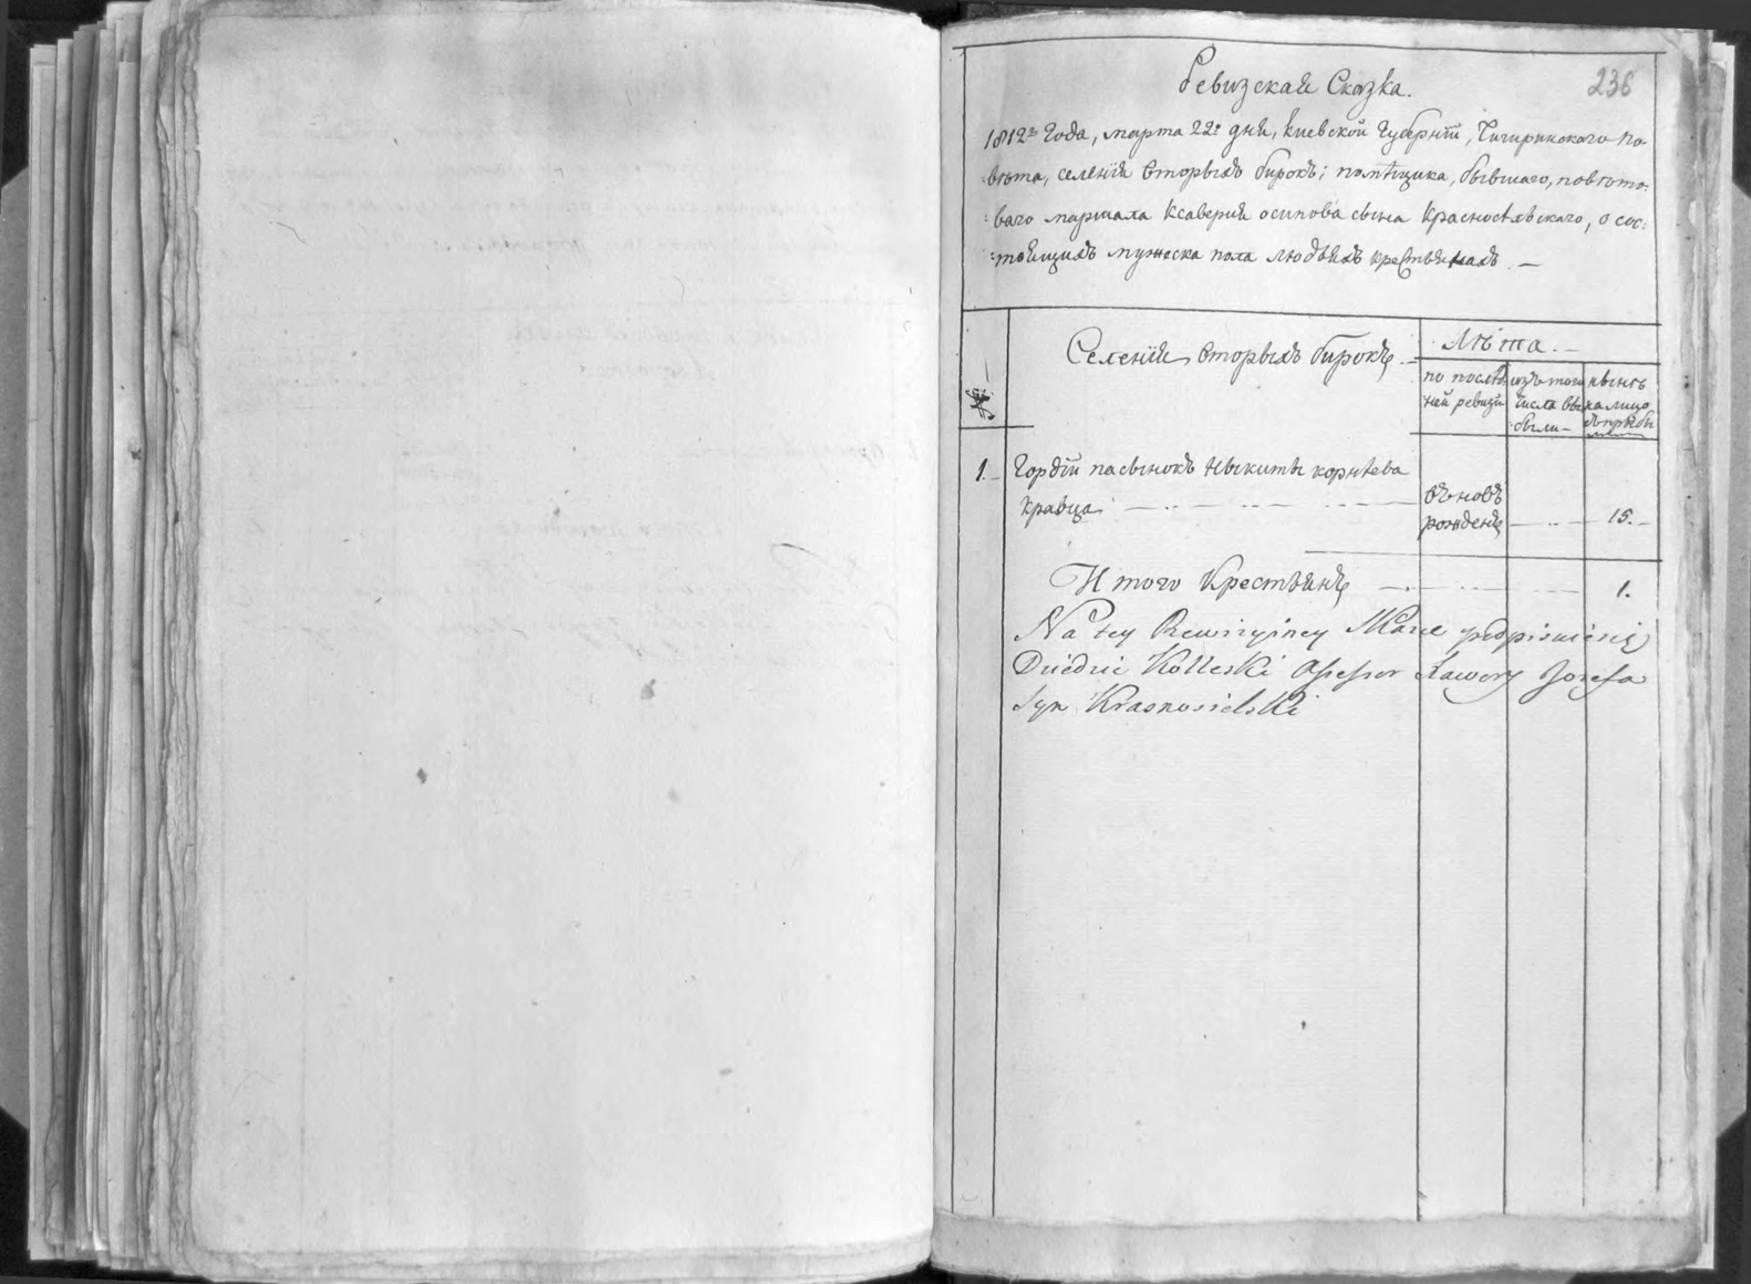 236
Ревизская Сказка.
1812го Года, марта 22г дня, Киевской Губерніи, Чигиринского по-
вѣта, селенія Вторыхъ бирокъ; помѣщика, бывшаго, повѣто-
:ваго маршала Ксаверия осипова сына Красносѣлвскаго, о сос:
:тоящихъ мужеска пола людѣяхъ крестьянахъ. —
№ —
Селенія Вторыхъ бирокъ.
Лѣта. —
по послѣд
ней ревизіи
изъ того
числа вы
были —
нынѣ
на лицо
1. — Гордій пасынокъ Никиты корнѣева
кравца
въновъ
рожденъ
15. —
Итого Крестьянъ 1.
Na tey Rewizyiney Skazce podpisuie się
Dziedzic Kolleski Assessor Xawery Jozefa
Syn Krasnosielski